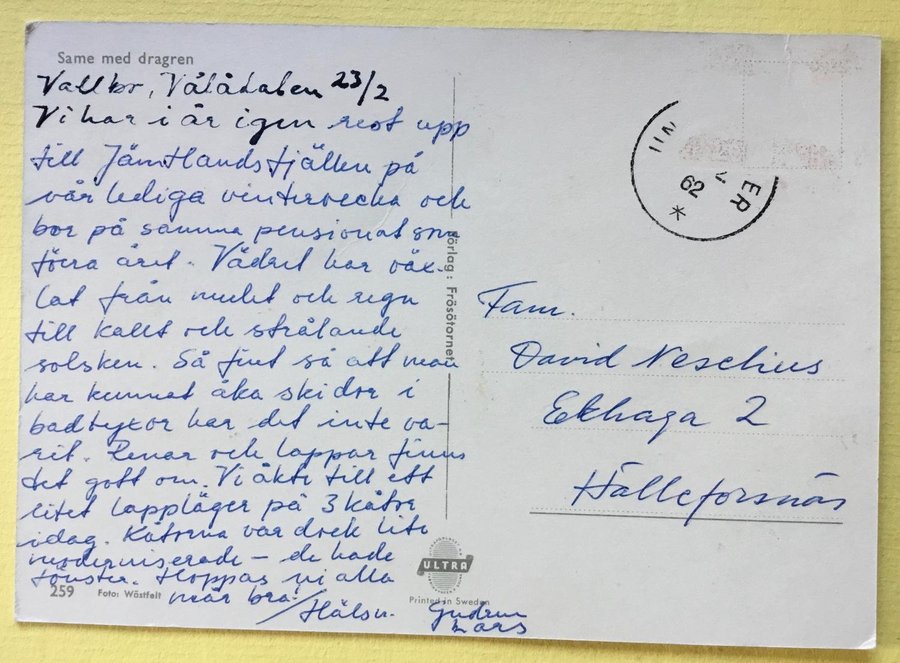 Same med dragren
Vallbo, Vålådalen 23/2
Vi har i år igen rest upp
till Jämtlandsfjällen på
vår lediga vintervecka och
bor på samma pensionat som
förra året. Vädret har väx-
lat från mulet och regn
till kallt och strålande
solsken. Så fint så att man
har kunnat åka skidor i
badbyxor har det inte va-
rit. Renar och lappar finns
det gott om. Vi åkte till ett
litet lappläger på 3 kåtor
idag. Kåtorna var dock lite
moderniserade – de hade
fönster. Hoppas ni alla
mår bra!
/Hälsn. Gudrun
Lars
259 Foto: Wästfelt
Förlag: Frösötornet
ULTRA
Printed in Sweden
62
ER
Fam.
David Neselius
Ekhaga 2
Hälleforsnäs